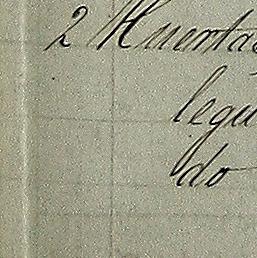 2 Huertas
legu
do